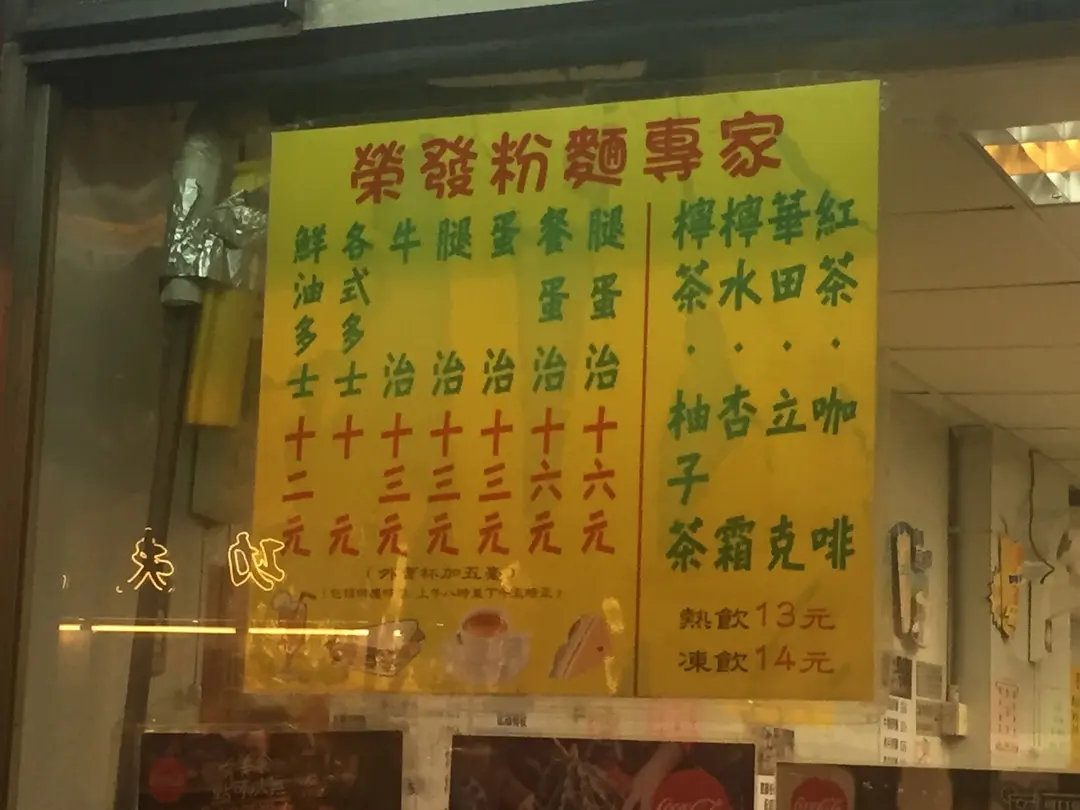 榮發粉麵專家
紅茶・咖啡
華田・立克
檸水・杏霜
檸茶・柚子茶
熱飲13元
凍飲14元
腿蛋治十六元
餐蛋治十六元
蛋治十三元
腿治十三元
牛治十三元
各式多士十元
鮮油多士十二元
(外賣杯加五毫)
上午八時至下午五時正)